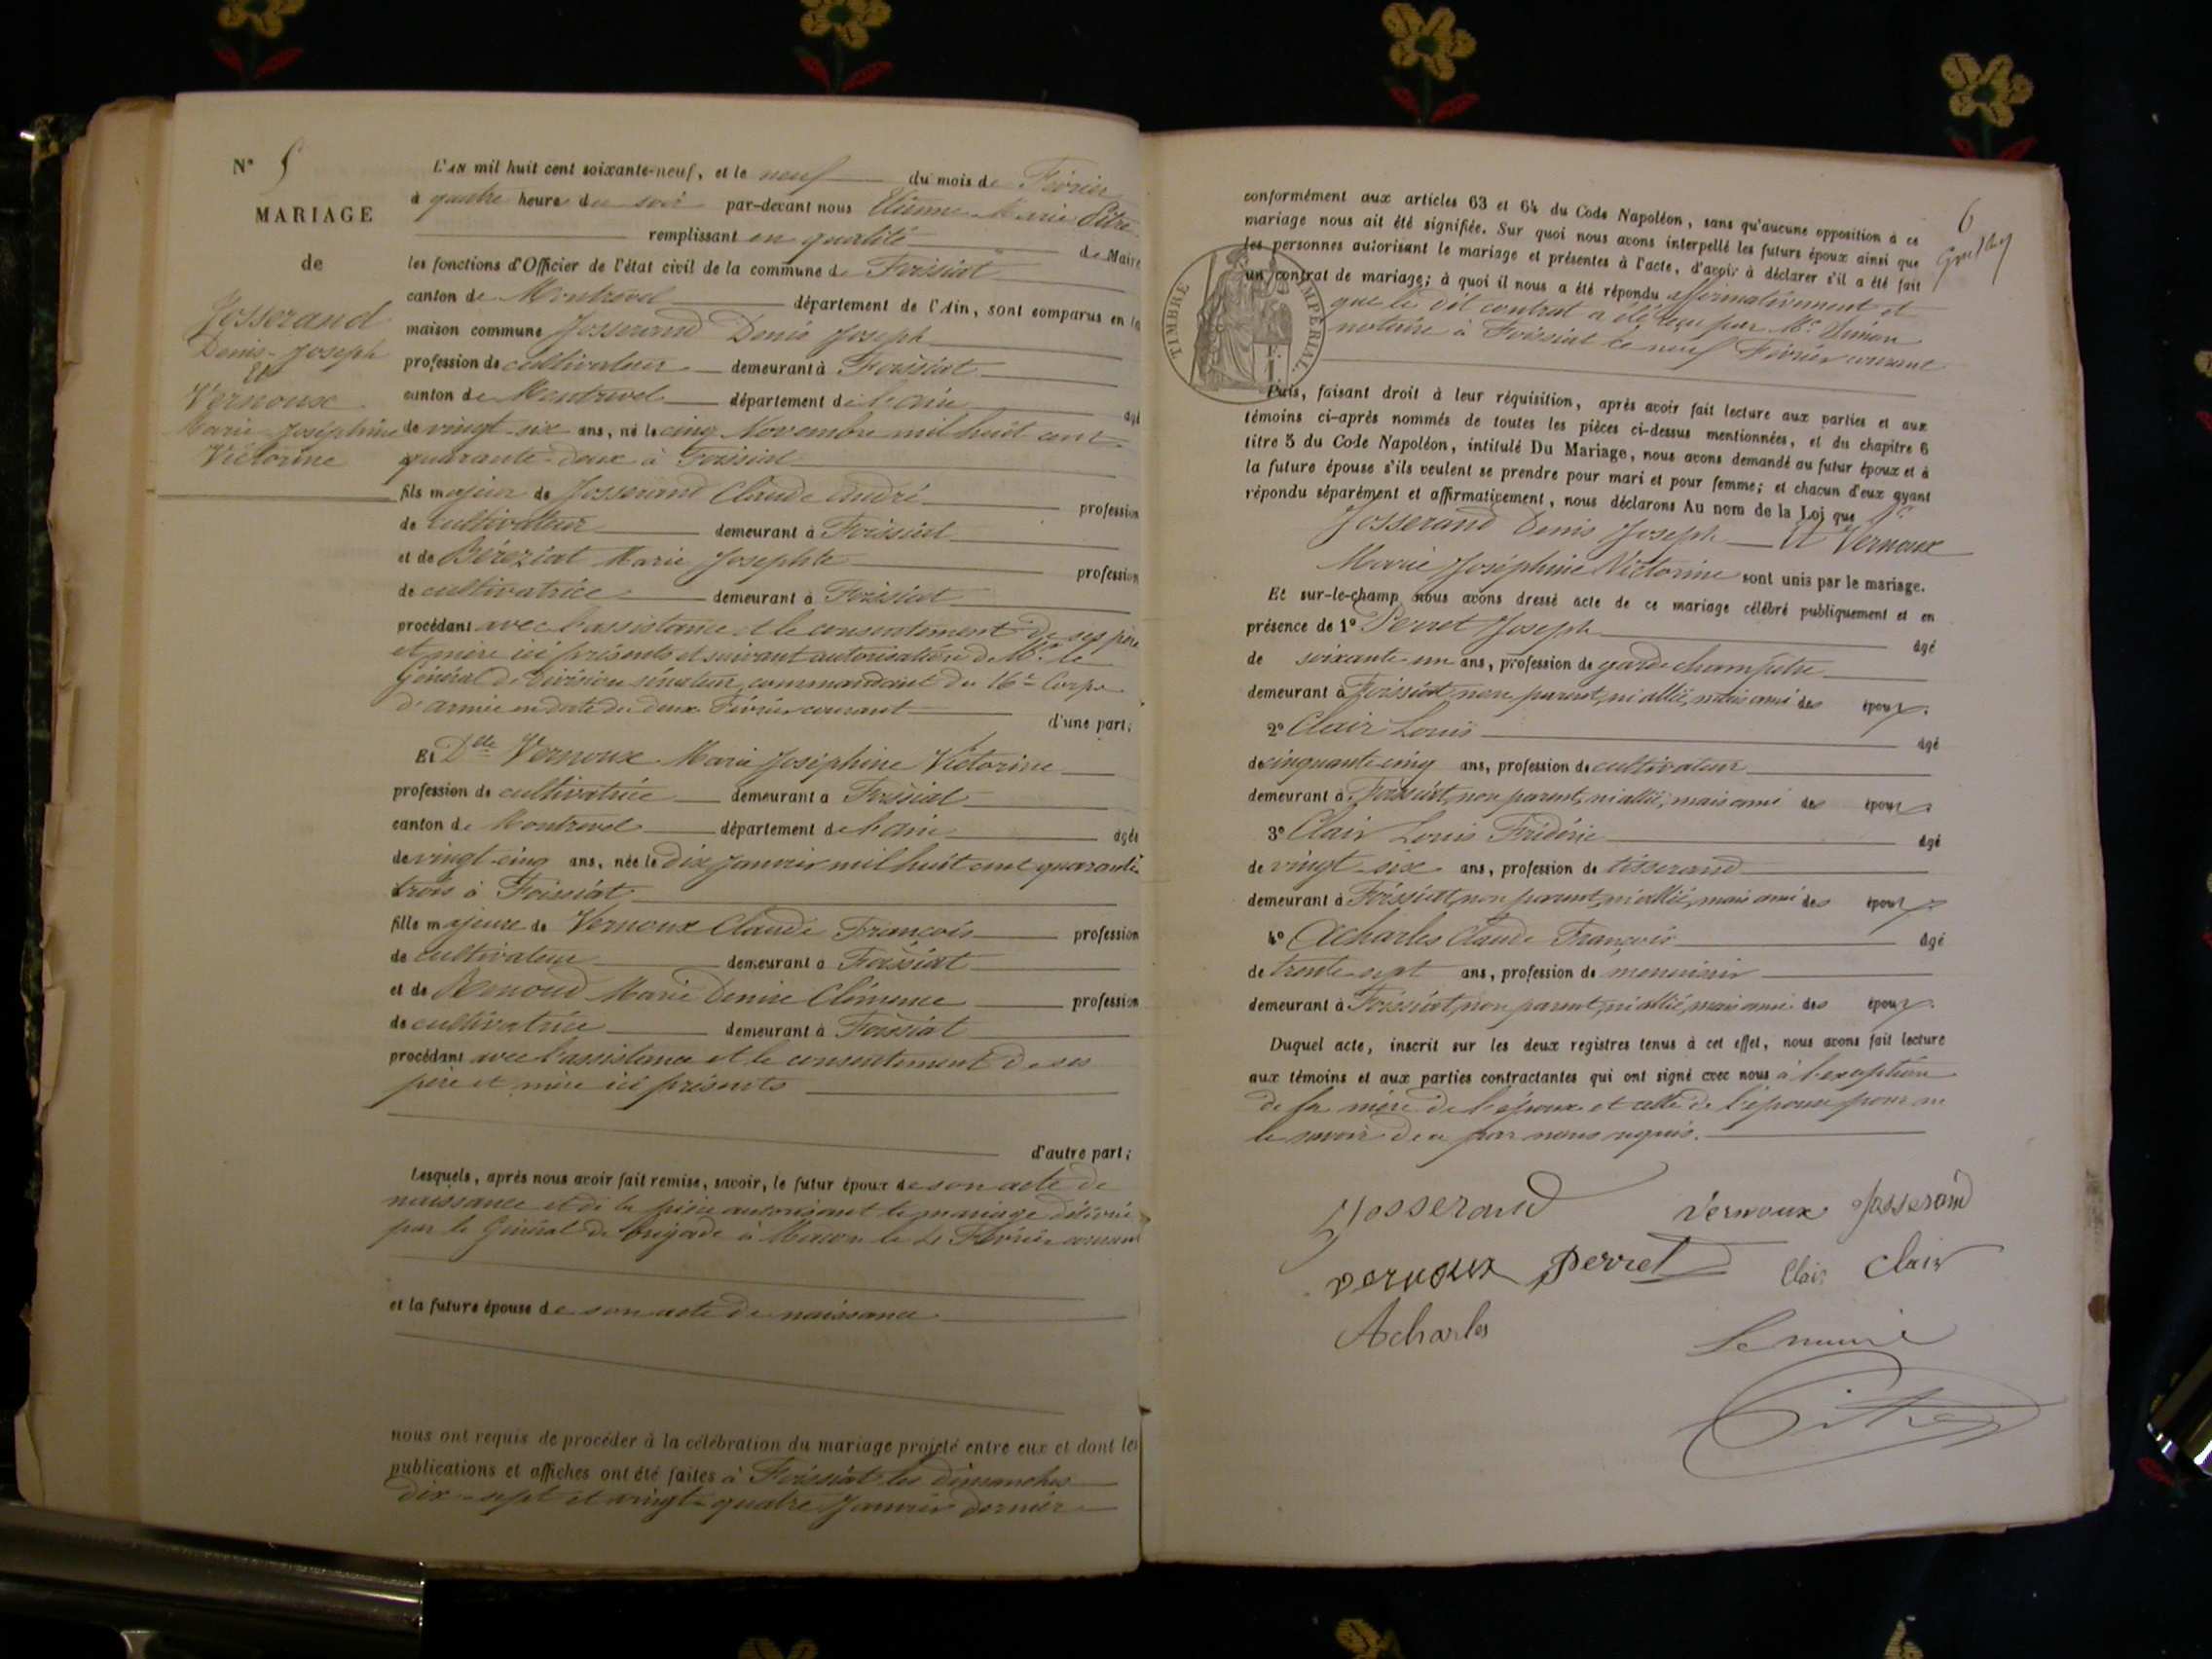 N° 5
MARIAGE
de
Josserand
Denis-Joseph
Et
Vernoux
Marie-Joséphine
Victorine
L'AN mil huit cent soixante-neuf, et le neuf du mois de Février
à quatre heure du soir par-devant nous Etienne Marie Pitre
remplissant en qualité de Maire
les fonctions d'Officier de l'état civil de la commune de Foissiat
canton de Montrevel département de l'Ain, sont comparus en la
maison commune Josserand Denis Joseph
profession de cultivateur demeurant à Foissiat
canton de Montrevel département de l'ain agé
de vingt-six ans, né le cinq Novembre mil huit cent
quarante-deux à Foissiat
fils majeur de Josserand Claude André profession
de cultivateur demeurant à Foissiat
et de Béréziat Marie Josephte profession
de cultivatrice demeurant à Foissiat
procédant avec l'assistance et le consentement de ses père
et mère ici présents et suivant autorisation de Mr le
Général de Division sénateur, commandant du 16e Corps
d'armée en date du deux Février courant d'une part;
Et Dlle Vernoux Marie Joséphine Victorine
profession de cultivatrice demeurant a Foissiat
canton de Montrevel département de l'ain agée
de vingt-cinq ans, née le dix Janvier mil huit cent quarante-
trois à Foissiat
fille majeure de Vernoux Claude François profession
de cultivateur demeurant a Foissiat
et de Renoud Marie Denise Clémence profession
de cultivatrice demeurant à Foissiat
procédant avec l'assistance et le consentement de ses
père et mère ici présents
d'autre part;
Lesquels, après nous avoir fait remise, savoir, le futur époux de son acte de
naissance et de la pièce autorisant le mariage délivrée
par le Général de brigade à Macon le 4 Février courant
et la future épouse de son acte de naissance
nous ont requis de procéder à la célébration du mariage projeté entre eux et dont les
publications et affiches ont été faites à Foissiat les dimanches
dix-sept et vingt-quatre Janvier dernier
6
conformément aux articles 63 et 64 du Code Napoléon, sans qu'aucune opposition à ce
mariage nous ait été signifiée. Sur quoi nous avons interpellé les futurs époux ainsi que
les personnes autorisant le mariage et présentes à l'acte, d'avoir à déclarer s'il a été fait
un contrat de mariage; à quoi il nous a été répondu affirmativement et
que le dit contrat a été reçu par Me
notaire à Foissiat le neuf Février courant
TIMBRE IMPÉRIAL
Puis, faisant droit à leur réquisition, après avoir fait lecture aux parties et aux
témoins ci-après nommés de toutes les pièces ci-dessus mentionnées, et du chapitre 6
titre 5 du Code Napoléon, intitulé Du Mariage, nous avons demandé au futur époux et à
la future épouse s'ils veulent se prendre pour mari et pour femme; et chacun d'eux ayant
répondu séparément et affirmativement, nous déclarons Au nom de la Loi que
Josserand Denis Joseph Et Vernoux
Marie Joséphine Victorine sont unis par le mariage.
Et sur-le-champ nous avons dressé acte de ce mariage célébré publiquement et en
présence de 1° Perret Joseph agé
de soixante-un ans, profession de garde champêtre
demeurant à Foissiat, non parent, ni allié, mais ami des époux.
2° Clair Louis agé
de cinquante-cinq ans, profession de cultivateur
demeurant à Foissiat, non parent, ni allié, mais ami des époux.
3° Clair Louis Frédéric agé
de vingt-six ans, profession de tisserand
demeurant à Foissiat, non parent, ni allié, mais ami des époux.
4° Acharles Claude François agé
de trente-sept ans, profession de menuisier
demeurant à Foissiat, non parent, ni allié, mais ami des époux.
Duquel acte, inscrit sur les deux registres tenus à cet effet, nous avons fait lecture
aux témoins et aux parties contractantes qui ont signé avec nous à l'exception
de la mère de l'époux et celle de l'épouse pour ne
le savoir de ce par nous requis.
Josserand Vernoux Josserand
vernoux perret Clair Clair
Acharles Le maire
Pitre